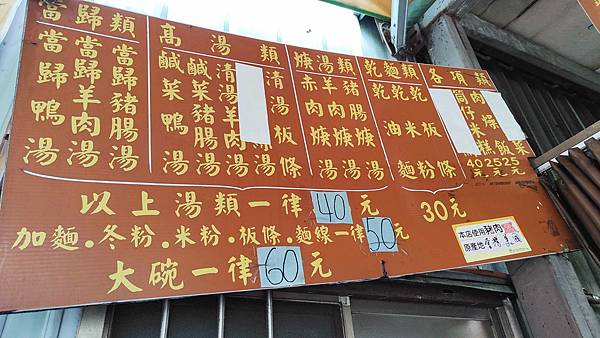 當歸類
當歸鴨湯
當歸羊肉湯
當歸豬腸湯
高湯類
鹹菜鴨湯
鹹菜豬腸湯
清湯羊肉湯
湯
清湯板條
焿湯類
赤肉焿湯
羊肉焿湯
豬腸焿湯
乾麵類
乾油麵
乾米粉
乾板條
各項類
筒仔米糕40元
肉燥飯25元
菜25元
以上湯類一律40元
30元
加麵.冬粉.米粉.板條.麵線一律50元
大碗一律60元
本店使用豬肉
原產地台灣